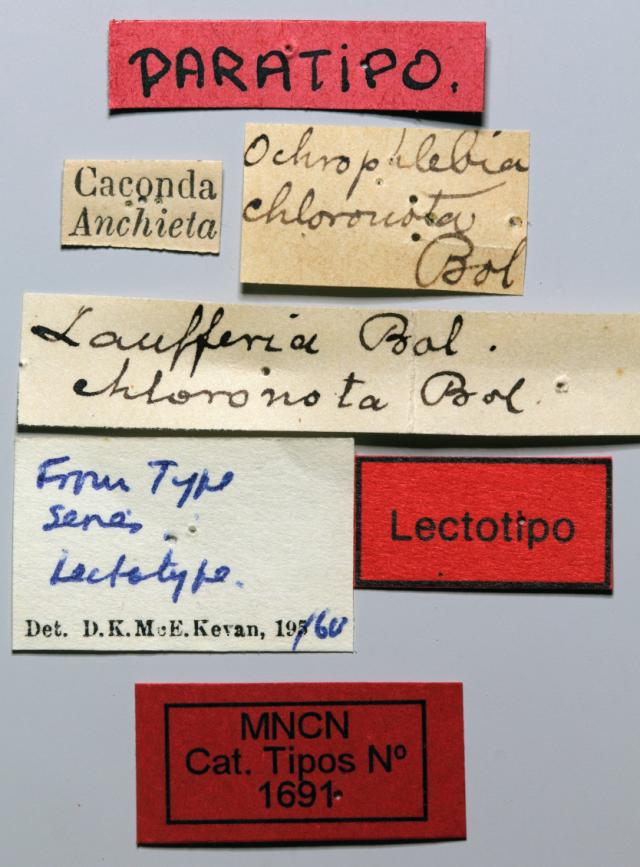 PARATIPO.
Caconda
Anchieta
Ochrophlebia
chloronota
Bol
Laufferia Bol.
chloronota Bol.
From Type
series
Lectotype.
Det. D.K.McE.Kevan, 195/60
Lectotipo
MNCN
Cat. Tipos Nº
1691